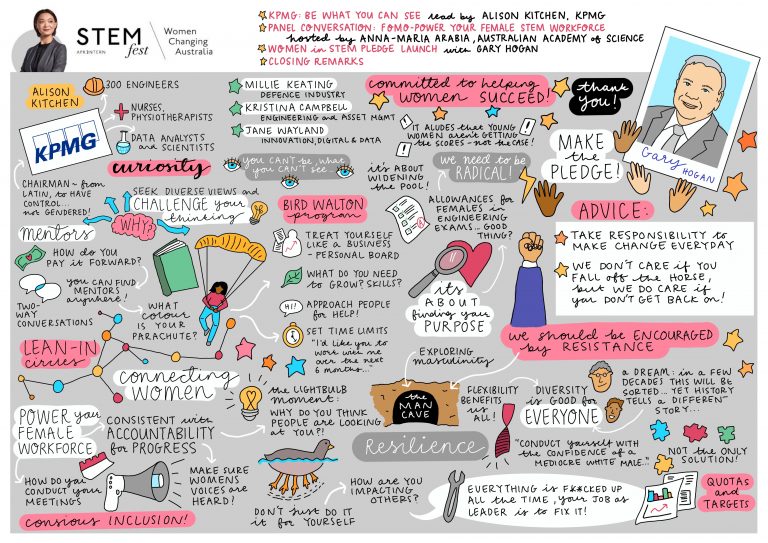 STEM
fest
APRINTERN
Women
Changing
Australia
KPMG: BE WHAT YOU CAN SEE lead by ALISON KITCHEN, KPMG
PANEL CONVERSATION: FOMO-POWER YOUR FEMALE STEM WORKFORCE
hosted by ANNA-MARIA ARABIA, AUSTRALIAN ACADEMY of SCIENCE
WOMEN in STEM PLEDGE LAUNCH with GARY HOGAN
CLOSING REMARKS
ALISON
KITCHEN
300 ENGINEERS
NURSES,
PHYSIOTHERAPISTS
DATA ANALYSTS
and SCIENTISTS
KPMG
curiosity
CHAIRMAN - from
LATIN, to HAVE
CONTROL...
not GENDERED!
SEEK DIVERSE VIEWS and
CHALLENGE your
thinking
WHY?
mentors
HOW do you
PAY it FORWARD?
you can FIND
MENTORS
anywhere!
TWO-
WAY
CONVERSATIONS
WHAT
colour
IS YOUR
PARACHUTE?
LEAN-IN
circles
connecting
WOMEN
POWER your
FEMALE
WORKFORCE
CONSISTENT with
ACCOUNTABILITY
for PROGRESS
HOW do YOU
CONDUCT your
MEETINGS
MAKE SURE
WOMENS
VOICES are
HEARD!
conscious INCLUSION!
MILLIE KEATING
DEFENCE INDUSTRY
KRISTINA CAMPBELL
ENGINEERING and ASSET MGMT
JANE WAYLAND
INNOVATION, DIGITAL & DATA
you CAN'T be, what
you CAN'T see...
BIRD WALTON
program
TREAT YOURSELF
LIKE A BUSINESS
- PERSONAL BOARD
WHAT DO YOU NEED
to GROW? SKILLS?
HI!
APPROACH PEOPLE
for HELP!
SET TIME LIMITS
"I'd like you to
work with me
over the next
6 months..."
the LIGHTBULB
moment:
WHY DO YOU THINK
PEOPLE are LOOKING
AT YOU?!
DON'T JUST DO IT
it for YOURSELF
HOW are YOU
IMPACTING
OTHERS?
committed to helping
WOMEN SUCCEED!
IT ALUDES that YOUNG
WOMEN aren't GETTING
the SCORES - not the CASE!
it's ABOUT
WIDENING
the POOL!
we need to be
RADICAL!
ALLOWANCES for
FEMALES in
ENGINEERING
EXAMS... GOOD
THING?
it's
ABOUT
finding your
PURPOSE
EXPLORING
masculinity
the
MAN
CAVE
Resilience
FLEXIBILITY
BENEFITS
us ALL!
thank
you!
MAKE
the
PLEDGE!
Gary
HOGAN
ADVICE:
TAKE RESPONSIBILITY to
MAKE CHANGE EVERYDAY
WE DON'T CARE if YOU
FALL off the HORSE,
but WE DO CARE if
you DON'T GET BACK on!
we should be ENCOURAGED
by RESISTANCE
DIVERSITY
is GOOD for
EVERYONE
a DREAM: in a FEW
DECADES THIS WILL BE
SORTED... YET HISTORY
TELLS a DIFFERENT
STORY...
"CONDUCT yourself WITH
the CONFIDENCE of a
MEDIOCRE WHITE MALE..."
NOT the ONLY
SOLUTION!
QUOTAS
and
TARGETS
EVERYTHING is F*#CKED UP
ALL the TIME, your JOB as
LEADER is to FIX IT!